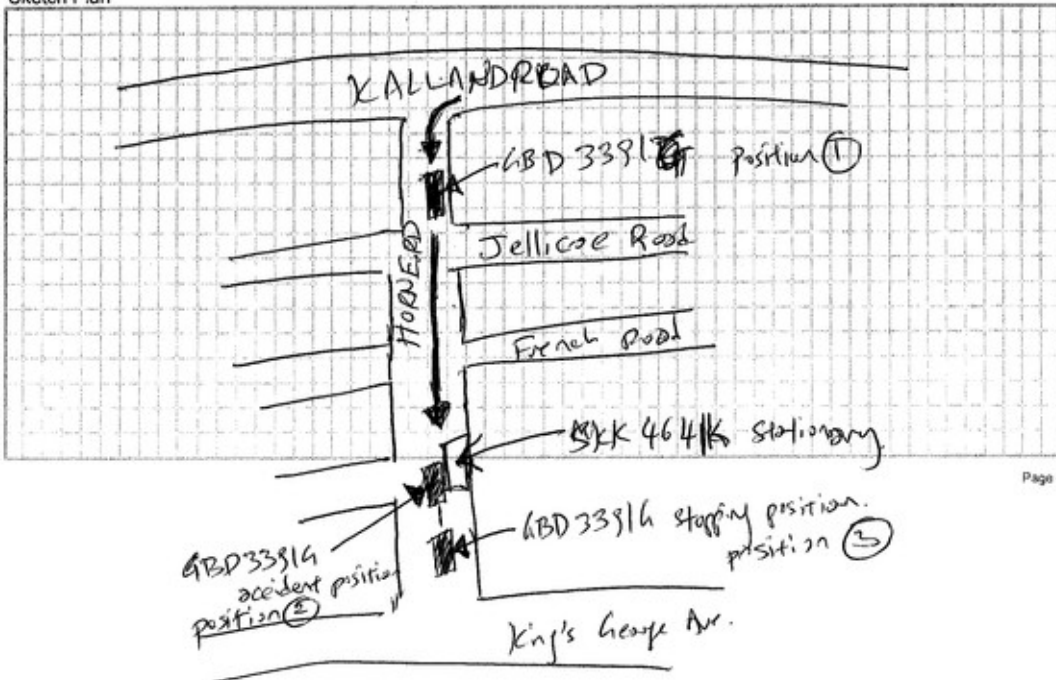 Sketch Plan
KALLANDROAD
GBD 3391G position ①
Jellicoe Road
HORNE RD
French Road
SKK 4641K stationary
Page
GBD3391G stopping position.
position ③
GBD3391G
accident position
position ②
King's George Ave.